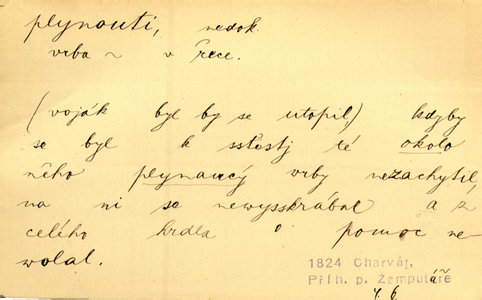 plynouti, nedok.
vrba ~ v řece.
(voják byl by se utopil) kdyby
se byl k sstěstj té okolo
něho plynaucý vrby nezachytil,
na ni se newysskrábal a z
celého hrdla o pomoc ne-
wolal.
1824 Charvát,
Příh. p. Zemputáře
4. 6